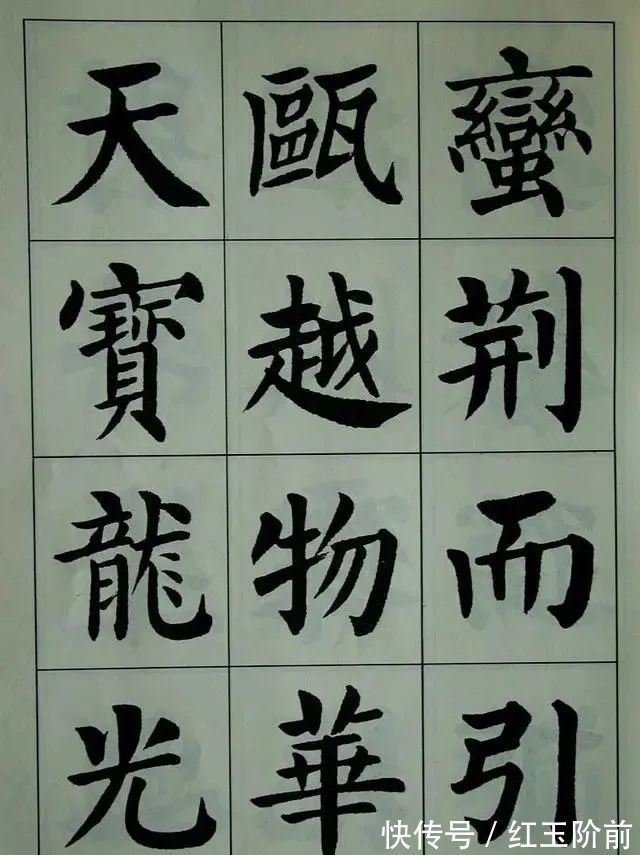 蠻荊而引
甌越物華
天寶龍光
快传号／红玉阶前